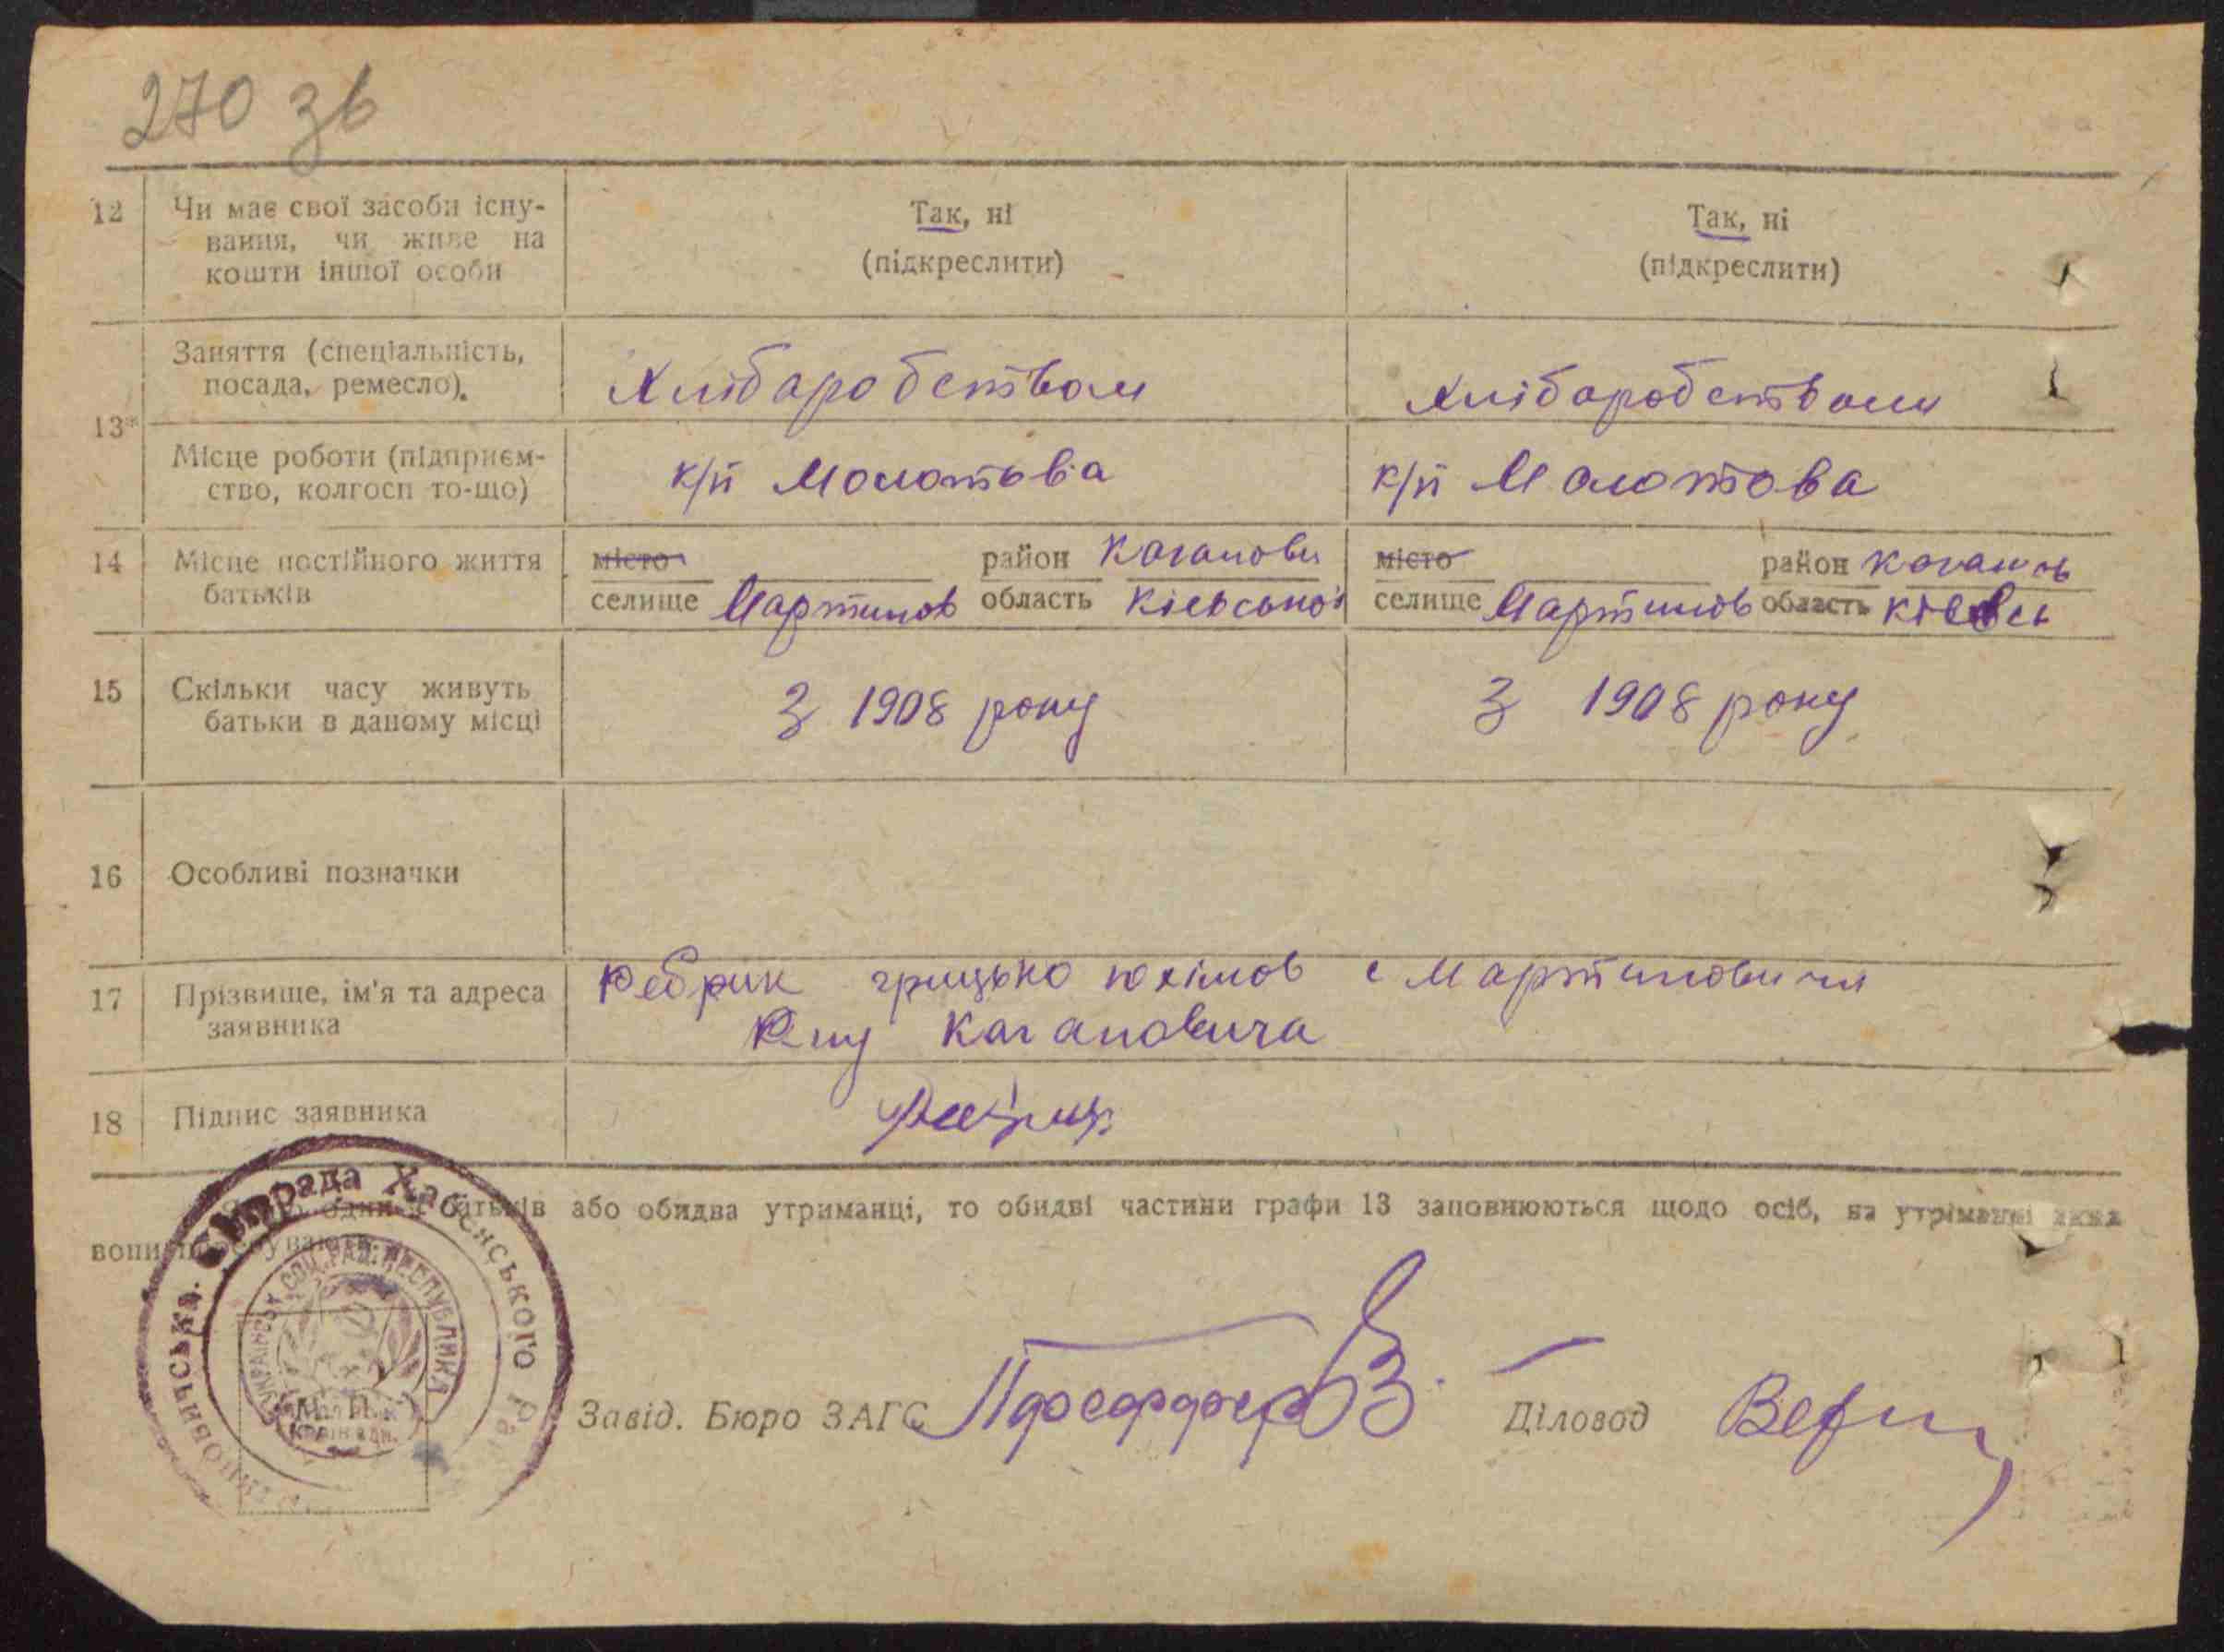 270 зв
12 Чи має свої засоби існу-
вання, чи живе на
кошти іншої особи
Так, ні
(підкреслити)
Так, ні
(підкреслити)
13*
Заняття (спеціальність,
посада, ремесло).
Хлібаробством
Хліборобством
Місце роботи (підприєм-
ство, колгосп то-що)
к/п Молотова
к/п Молотова
14 Місце постійного життя
батьків
місто район Каганови
селище Мартинов область Кіевської
місто район Каганов
селище Мартинов область Кіевсь
15 Скільки часу живуть
батьки в даному місці
З 1908 року
З 1908 року
16 Особливі позначки
17 Прізвище, ім'я та адреса
заявника
Ребрик грицько юхімов с Мартиновичи
Рну Кагановича
18 Підпис заявника
один з батьків або обидва утриманці, то обидві частини графи 13 заповнюються щодо осіб, на утриманні яких
вони перебувають.
Сільрада Хабенського Рай
УКРАЇНСЬК. СОЦ. РАД. РЕСПУБЛИКА
М. П.
Завід. Бюро ЗАГС
Діловод